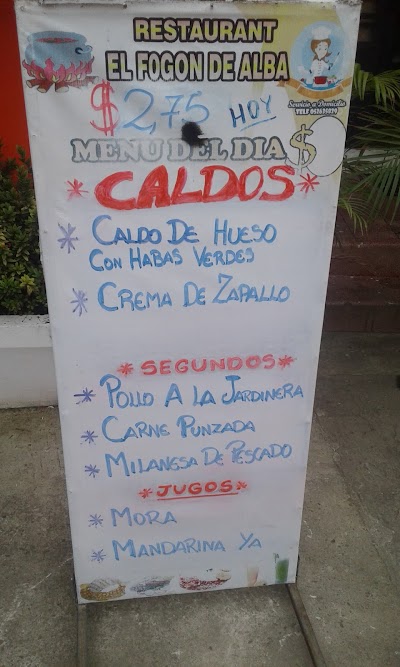 RESTAURANT
EL FOGON DE ALBA
Servicio a Domicilio
$2,75 HOY
MENU DEL DIA $
CALDOS
CALDO DE HUESO
CON HABAS VERDES
CREMA DE ZAPALLO
SEGUNDOS
POLLO A LA JARDINERA
CARNE PUNZADA
MILANESA DE PESCADO
JUGOS
MORA
MANDARINA YA